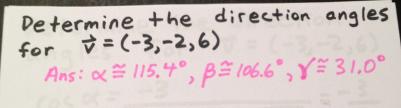 Determine the direction angles
for v⃗ = (-3,-2,6)
Ans: α ≅ 115.4°, β ≅ 106.6°, γ ≅ 31.0°